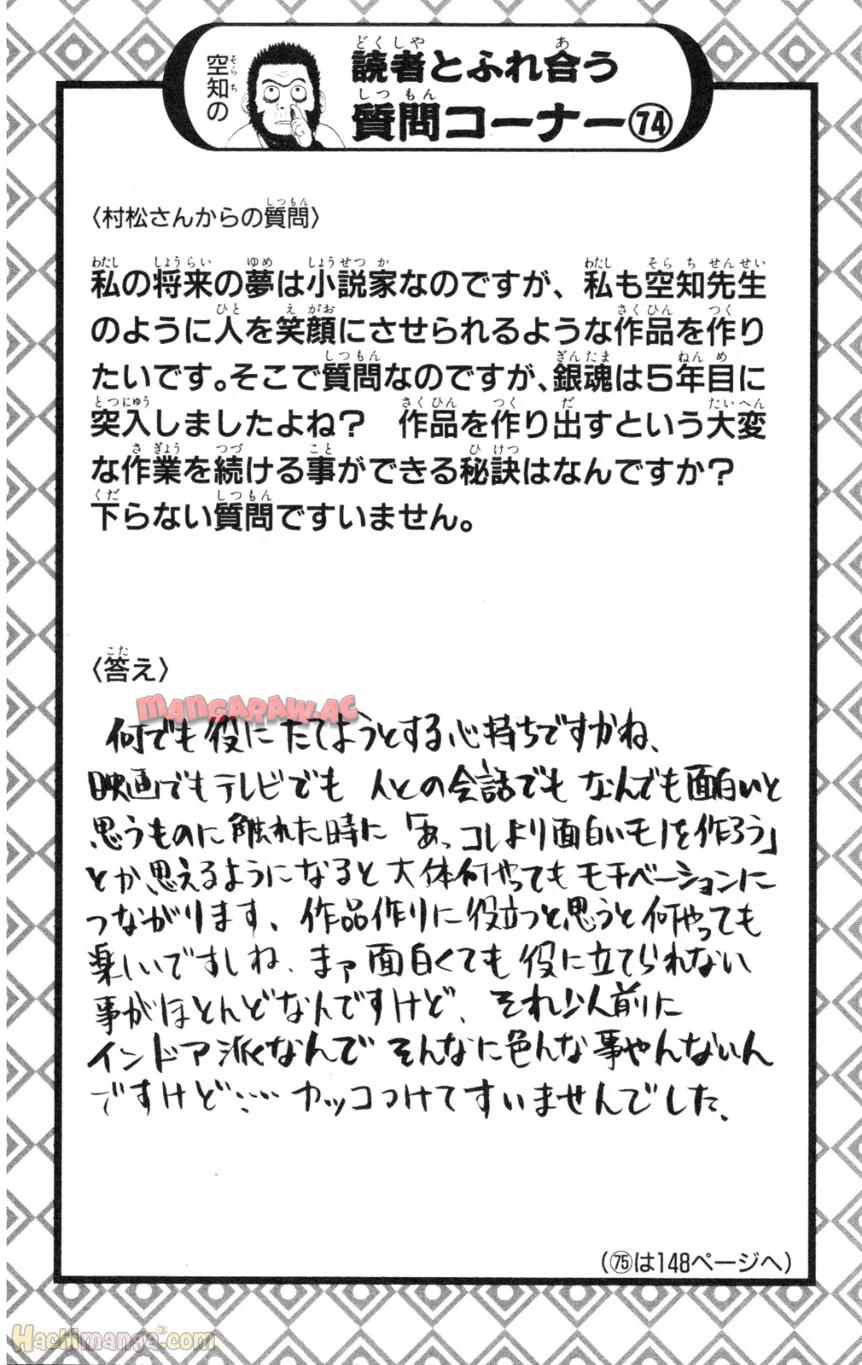 空知の
読者とふれ合う
質問コーナー74
〈村松さんからの質問〉
私の将来の夢は小説家なのですが、私も空知先生
のように人を笑顔にさせられるような作品を作り
たいです。そこで質問なのですが、銀魂は5年目に
突入しましたよね?　作品を作り出すという大変
な作業を続ける事ができる秘訣はなんですか?
下らない質問ですいません。
〈答え〉
MANGARAW.AC
何でも役にたてようとする心持ちですかね、
映画でもテレビでも 人との会話でも なんでも面白いと
思うものに触れた時に「あっコレより面白いモノを作ろう」
とか思えるようになると大体何やってもモチベーションに
つながります、作品作りに役立つと思うと何やっても
楽しいですしね、まァ面白くても役に立てられない
事がほとんどなんですけど、それ以前に
インドア派なんで そんなに色んな事やんないん
ですけど…… カッコつけてすいませんでした、
(75は148ページへ)
Hachimanga.com